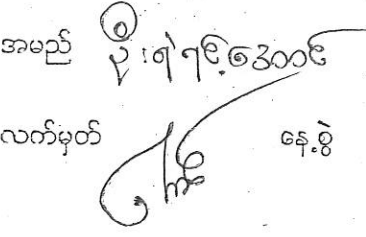 အမည် ဦးရဲရင့်အောင်
လက်မှတ် နေ့စွဲ